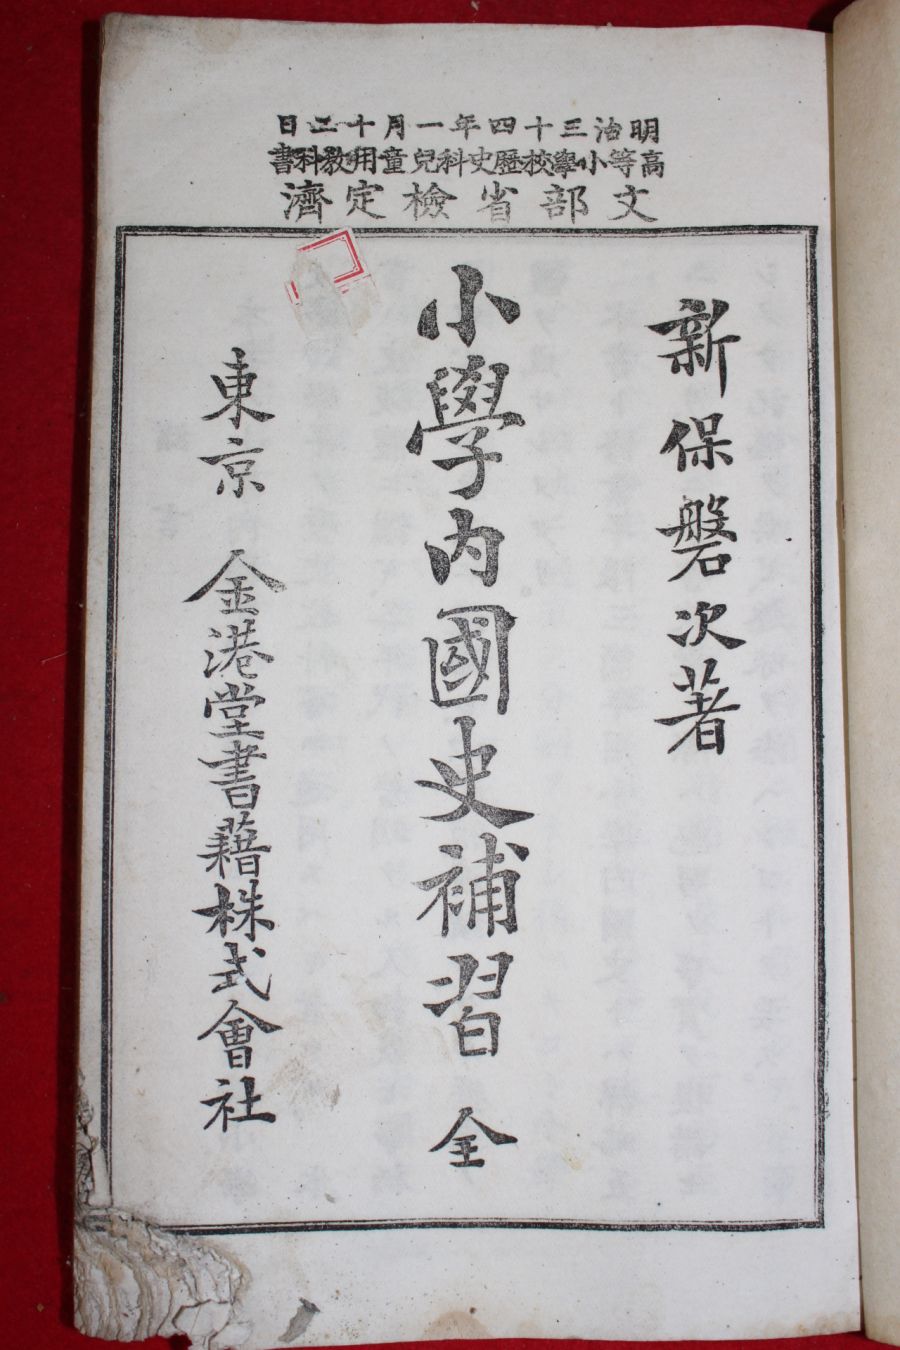 明治三十四年一月十二日
高等小學校歷史科兒童用教科書
文部省檢定濟
新保磐次著
小學內國史補習 全
東京 金港堂書籍株式會社